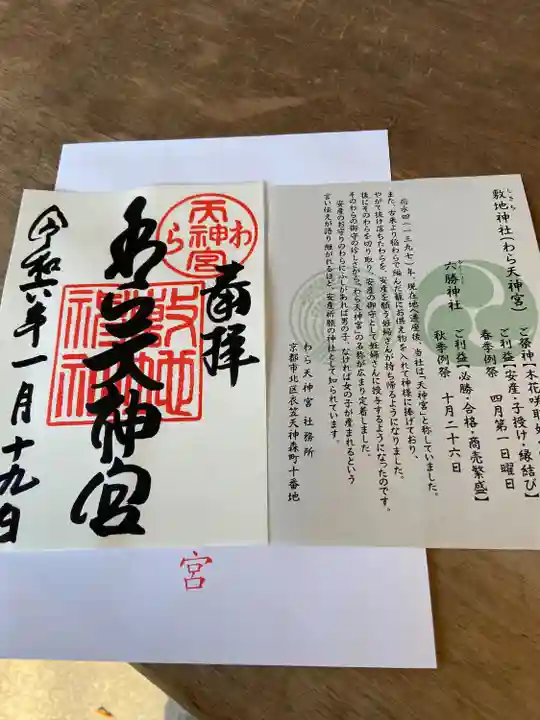 奉拝
わら天神宮
令和六年一月十九日
敷地神社
宮
しきち
敷地神社(わら天神宮)
ご祭神【木花咲耶
ご利益【安産・子授け・縁結び】
春季例祭 四月第一日曜日
六勝神社
ご利益【必勝・合格・商売繁盛】
秋季例祭 十月二十六日
応永四(一三九七)年、現在地へ遷座後、当社は、「天神宮」と称していました。
また、古来より稲わらで編んだ籠にお供え物を入れて神様に捧げており、
やがて抜け落ちたわらを、安産を願う妊婦さんが持ち帰るようになりました。
後にそのわらを切り取り、安産の御守として妊婦さんに授与するようになったのです。
そのわらの御守の珍しさから、「わら天神宮」の名称が広まり定着しました。
安産のお守りのわらにふしがあれば男の子、なければ女の子が産まれるという
言い伝えが語り継がれるほど、安産祈願の神社として知られています。
わら天神宮社務所
京都市北区衣笠天神森町十番地